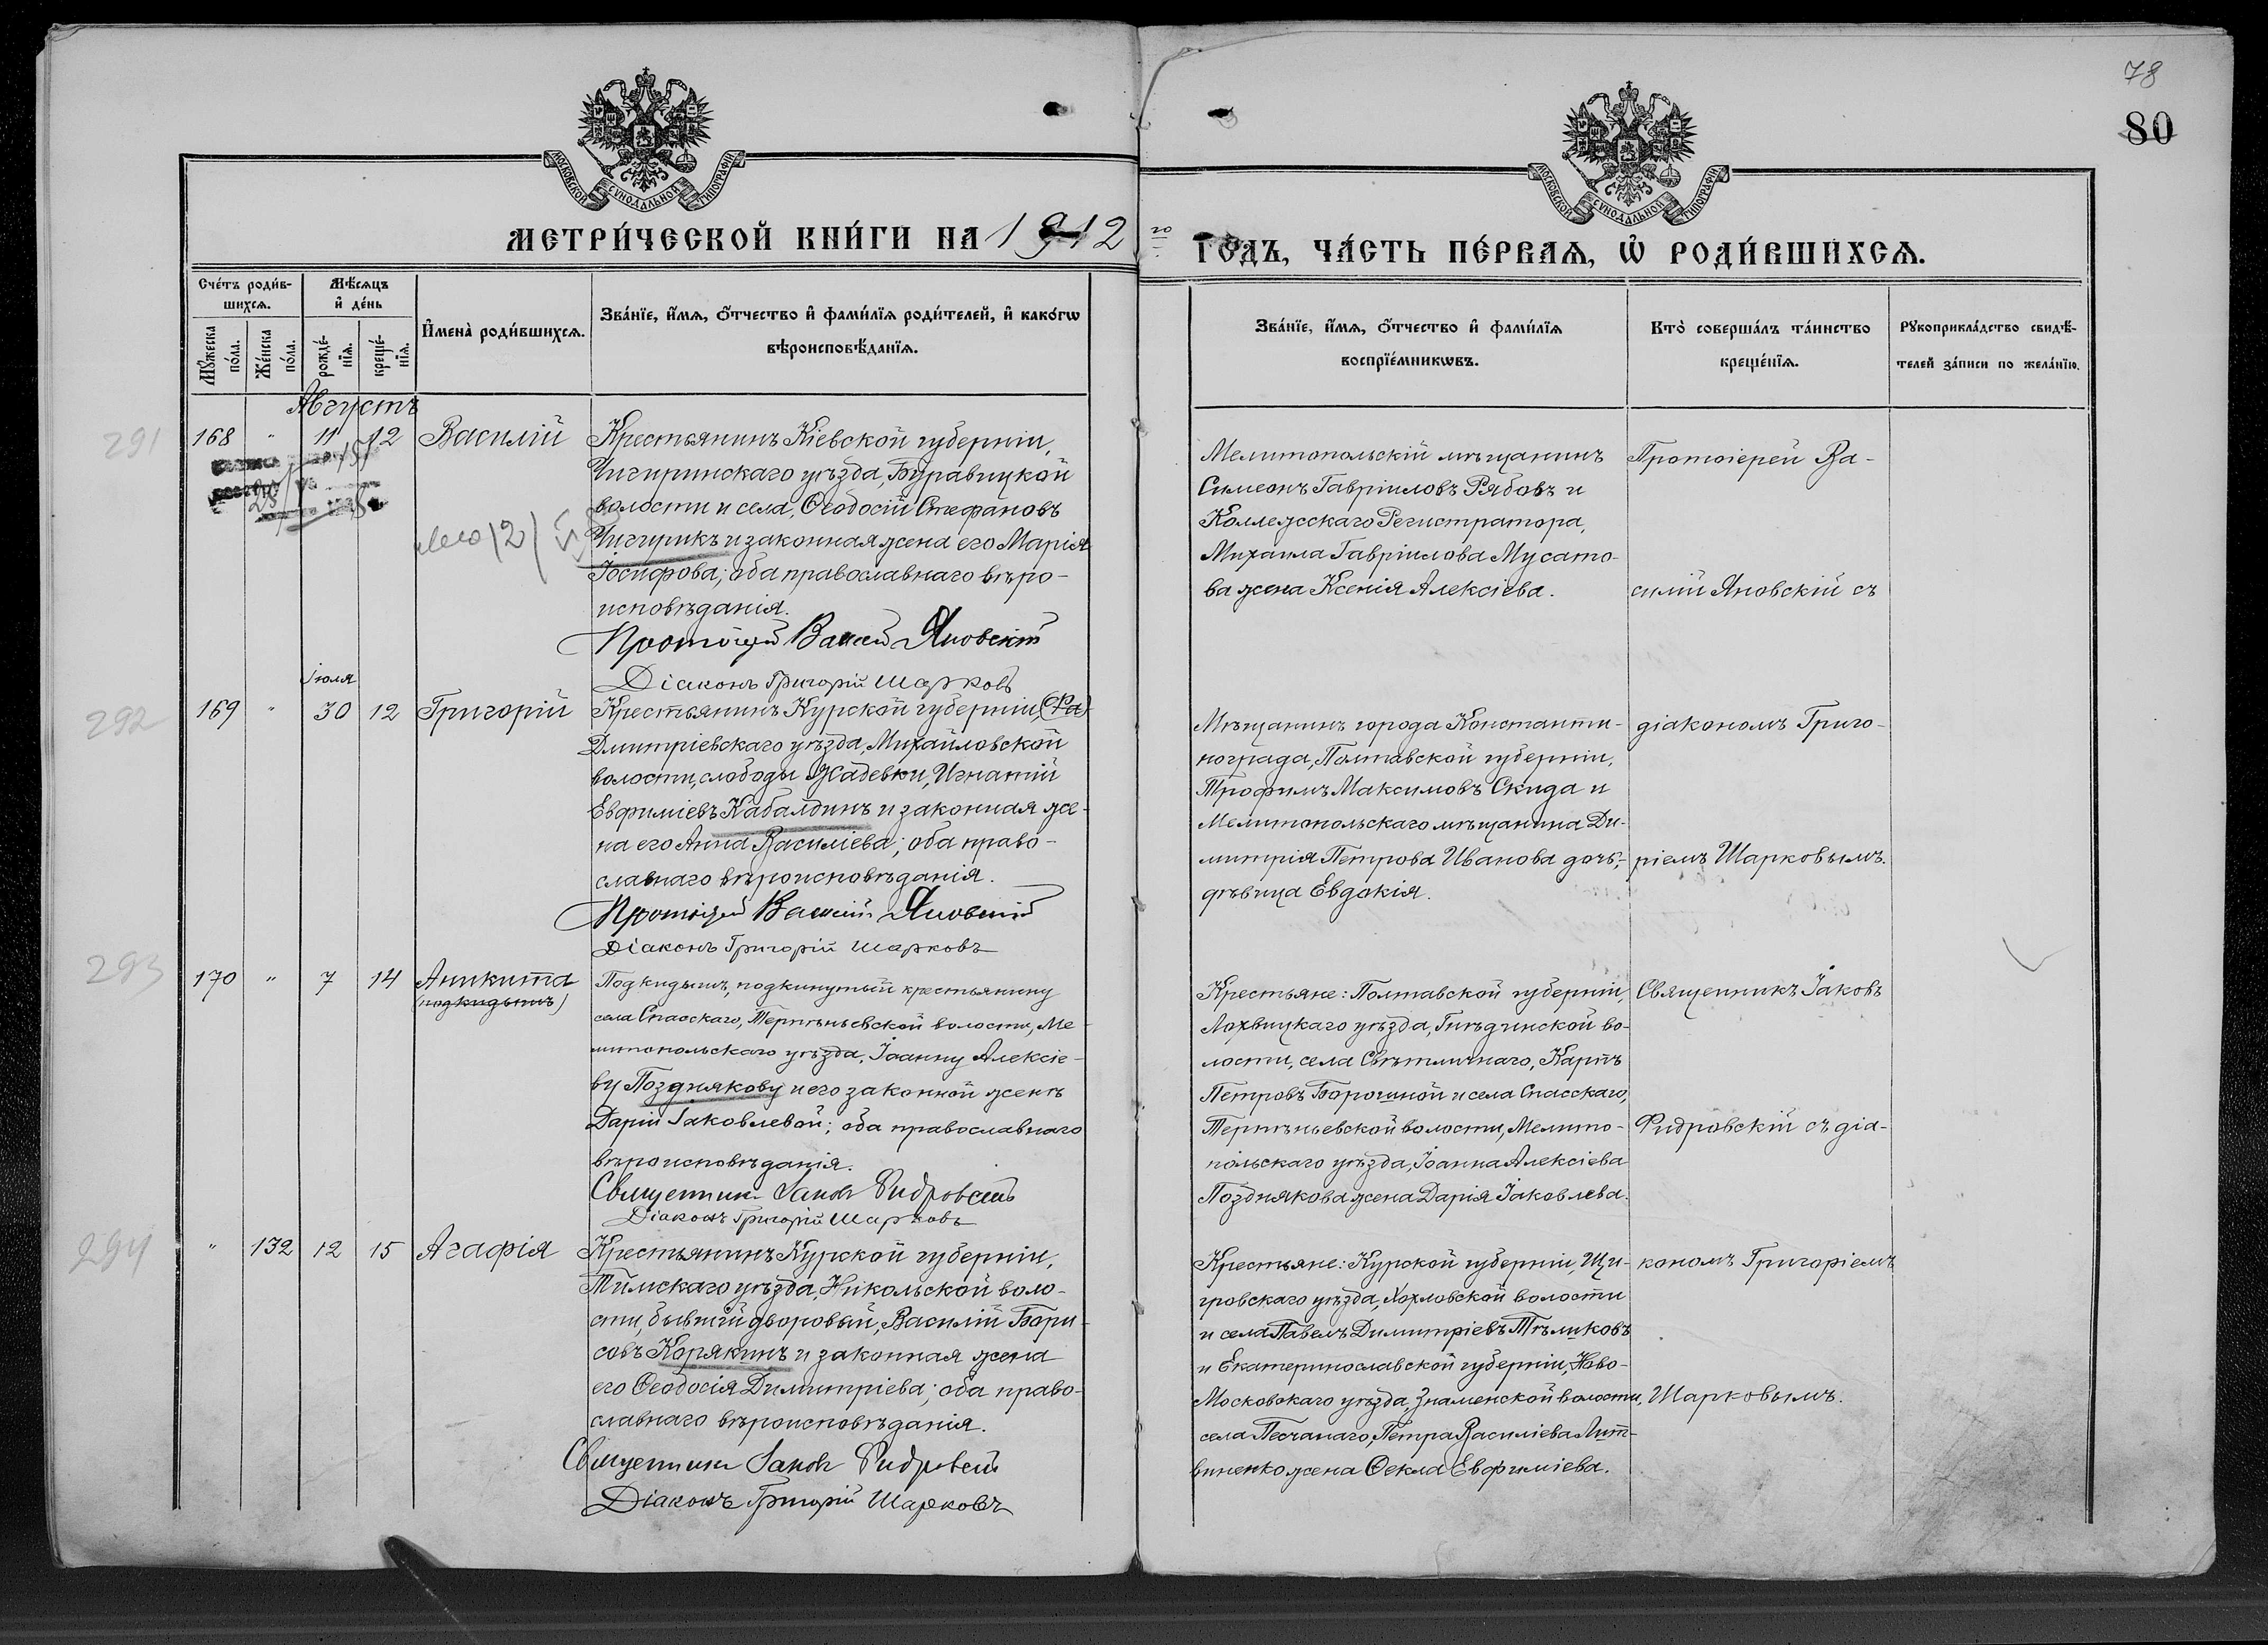 78
80
МОСКОВСКОЙ СѴНОДАЛЬНОЙ ТИПОГРАФІИ
МОСКОВСКОЙ СѴНОДАЛЬНОЙ ТИПОГРАФІИ
МЕТРИ́ЧЕСКОЙ КНИ́ГИ НА 1912 го ГО́ДЪ, ЧА́СТЬ ПЕ́РВАЯ, Ѡ РОДИ́ВШИХСЯ.
Сче́тъ роди́в-
шихся.
Мꙋ́жеска по́ла.
Же́нска по́ла.
Мѣ́сяцъ
и҆ де́нь
рожде́-
нїя.
креще́-
нїя.
И҆мена̀ роди́вшихся.
Зва́нїе, и҆́мя, ѻ҆́тчество и҆ фами́лїя роди́телей, и҆ како́гѡ
вѣроисповѣ́данїя.
Зва́нїе, и҆́мя, ѻ҆́тчество и҆ фами́лїя
воспрїе́мникѡвъ.
Кто̀ соверша́лъ та́инство
креще́нїя.
Рꙋкоприкла́дство свидѣ́-
телей за́писи по жела́нїю.
Августъ
291
168 " 11 12 Василій
Крестьянинъ Кіевской губерніи,
Чигиринскаго уѣзда, Буравицкой
волости и села, Ѳеодосій Стефановъ
Чигирикъ и законная жена его Марія
Іосифова; оба православнаго вѣро-
исповѣданія.
Протоіерей Василій Яновскій
Діаконъ Григорій Шарковъ
Мелитопольскій мѣщанинъ
Симеонъ Гавріиловъ Рябовъ и
Коллежскаго Регистратора,
Михаила Гавріилова Мусато-
ва жена Ксенія Алексіева.
Протоіерей Ва-
силій Яновскій съ
Іюля
292
169 " 30 12 Григорій
Крестьянинъ Курской губерніи,
Дмитріевскаго уѣзда, Михайловской
волости, слободы Жадевки, Игнатій
Евфиміевъ Кабалдинъ и законная же-
на его Анна Василіева; оба право-
славнаго вѣроисповѣданія.
Протоіерей Василій Яновскій
Діаконъ Григорій Шарковъ
Мѣщанинъ города Константи-
нограда, Полтавской губерніи,
Трофимъ Максимовъ Скида и
Мелитопольскаго мѣщанина Ди-
митрія Петрова Иванова дочь,-
дѣвица Евдокія.
діакономъ Григо-
ріемъ Шарковымъ.
293
170 " 7 14 Аникита
(подкидышъ)
Подкидышъ, подкинутый крестьянину
села Спасскаго, Терпѣньевской волости, Ме-
литопольскаго уѣзда, Іоанну Алексіе-
ву Позднякову и его законной женѣ
Даріи Іаковлевой; оба православнаго
вѣроисповѣданія.
Священникъ Іаковъ Фидровскій
Діаконъ Григорій Шарковъ
Крестьяне: Полтавской губерніи,
Лохвицкаго уѣзда, Гнѣдинской во-
лости, села Свѣтличнаго, Карпъ
Петровъ Борошной и села Спасскаго,
Терпѣньевской волости, Мелито-
польскаго уѣзда, Іоанна Алексіева
Позднякова жена Дарія Іаковлева.
Священникъ Іаковъ
Фидровскій съ діа-
294
" 132 12 15 Агафія
Крестьянинъ Курской губерніи,
Тимскаго уѣзда, Никольской воло-
сти, бывшій дворовый, Василій Бори-
совъ Корякинъ и законная жена
его Ѳеодосія Димитріева; оба право-
славнаго вѣроисповѣданія.
Священникъ Іаковъ Фидровскій
Діаконъ Григорій Шарковъ
Крестьяне: Курской губерніи, Щи-
гровскаго уѣзда, Хохловской волости
и села Павелъ Димитріевъ Тѣликовъ
и Екатеринославской губерніи, Ново-
Московскаго уѣзда, Знаменской волости,
села Песчанаго, Петра Василіева Лит-
виненко жена Ѳекла Евфиміева.
кономъ Григоріемъ
Шарковымъ.